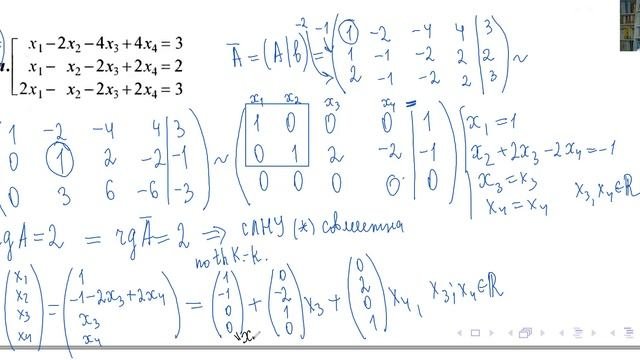 x₁ − 2x₂ − 4x₃ + 4x₄ = 3
x₁ − x₂ − 2x₃ + 2x₄ = 2
2x₁ − x₂ − 2x₃ + 2x₄ = 3
Ā = (A|b) =
-2 -1
1 -2 -4 4 | 3
1 -1 -2 2 | 2
2 -1 -2 2 | 3
~
1 -2 -4 4 | 3
0 1 2 -2 | -1
0 3 6 -6 | -3
~
x₁ x₂ x₃ x₄ =
1 0 0 0 | 1
0 1 2 -2 | -1
0 0 0 0 | 0
x₁ = 1
x₂ + 2x₃ - 2x₄ = -1
x₃ = x₃
x₄ = x₄
x₃, x₄ ∈ ℝ
rgA = 2 = rgĀ = 2 ⇒ СЛНУ (*) совместна
по th К-К.
(x₁ x₂ x₃ x₄) = (1 -1-2x₃+2x₄ x₃ x₄) = (1 -1 0 0) + (0 -2 1 0) x₃ + (0 2 0 1) x₄, x₃; x₄ ∈ ℝ